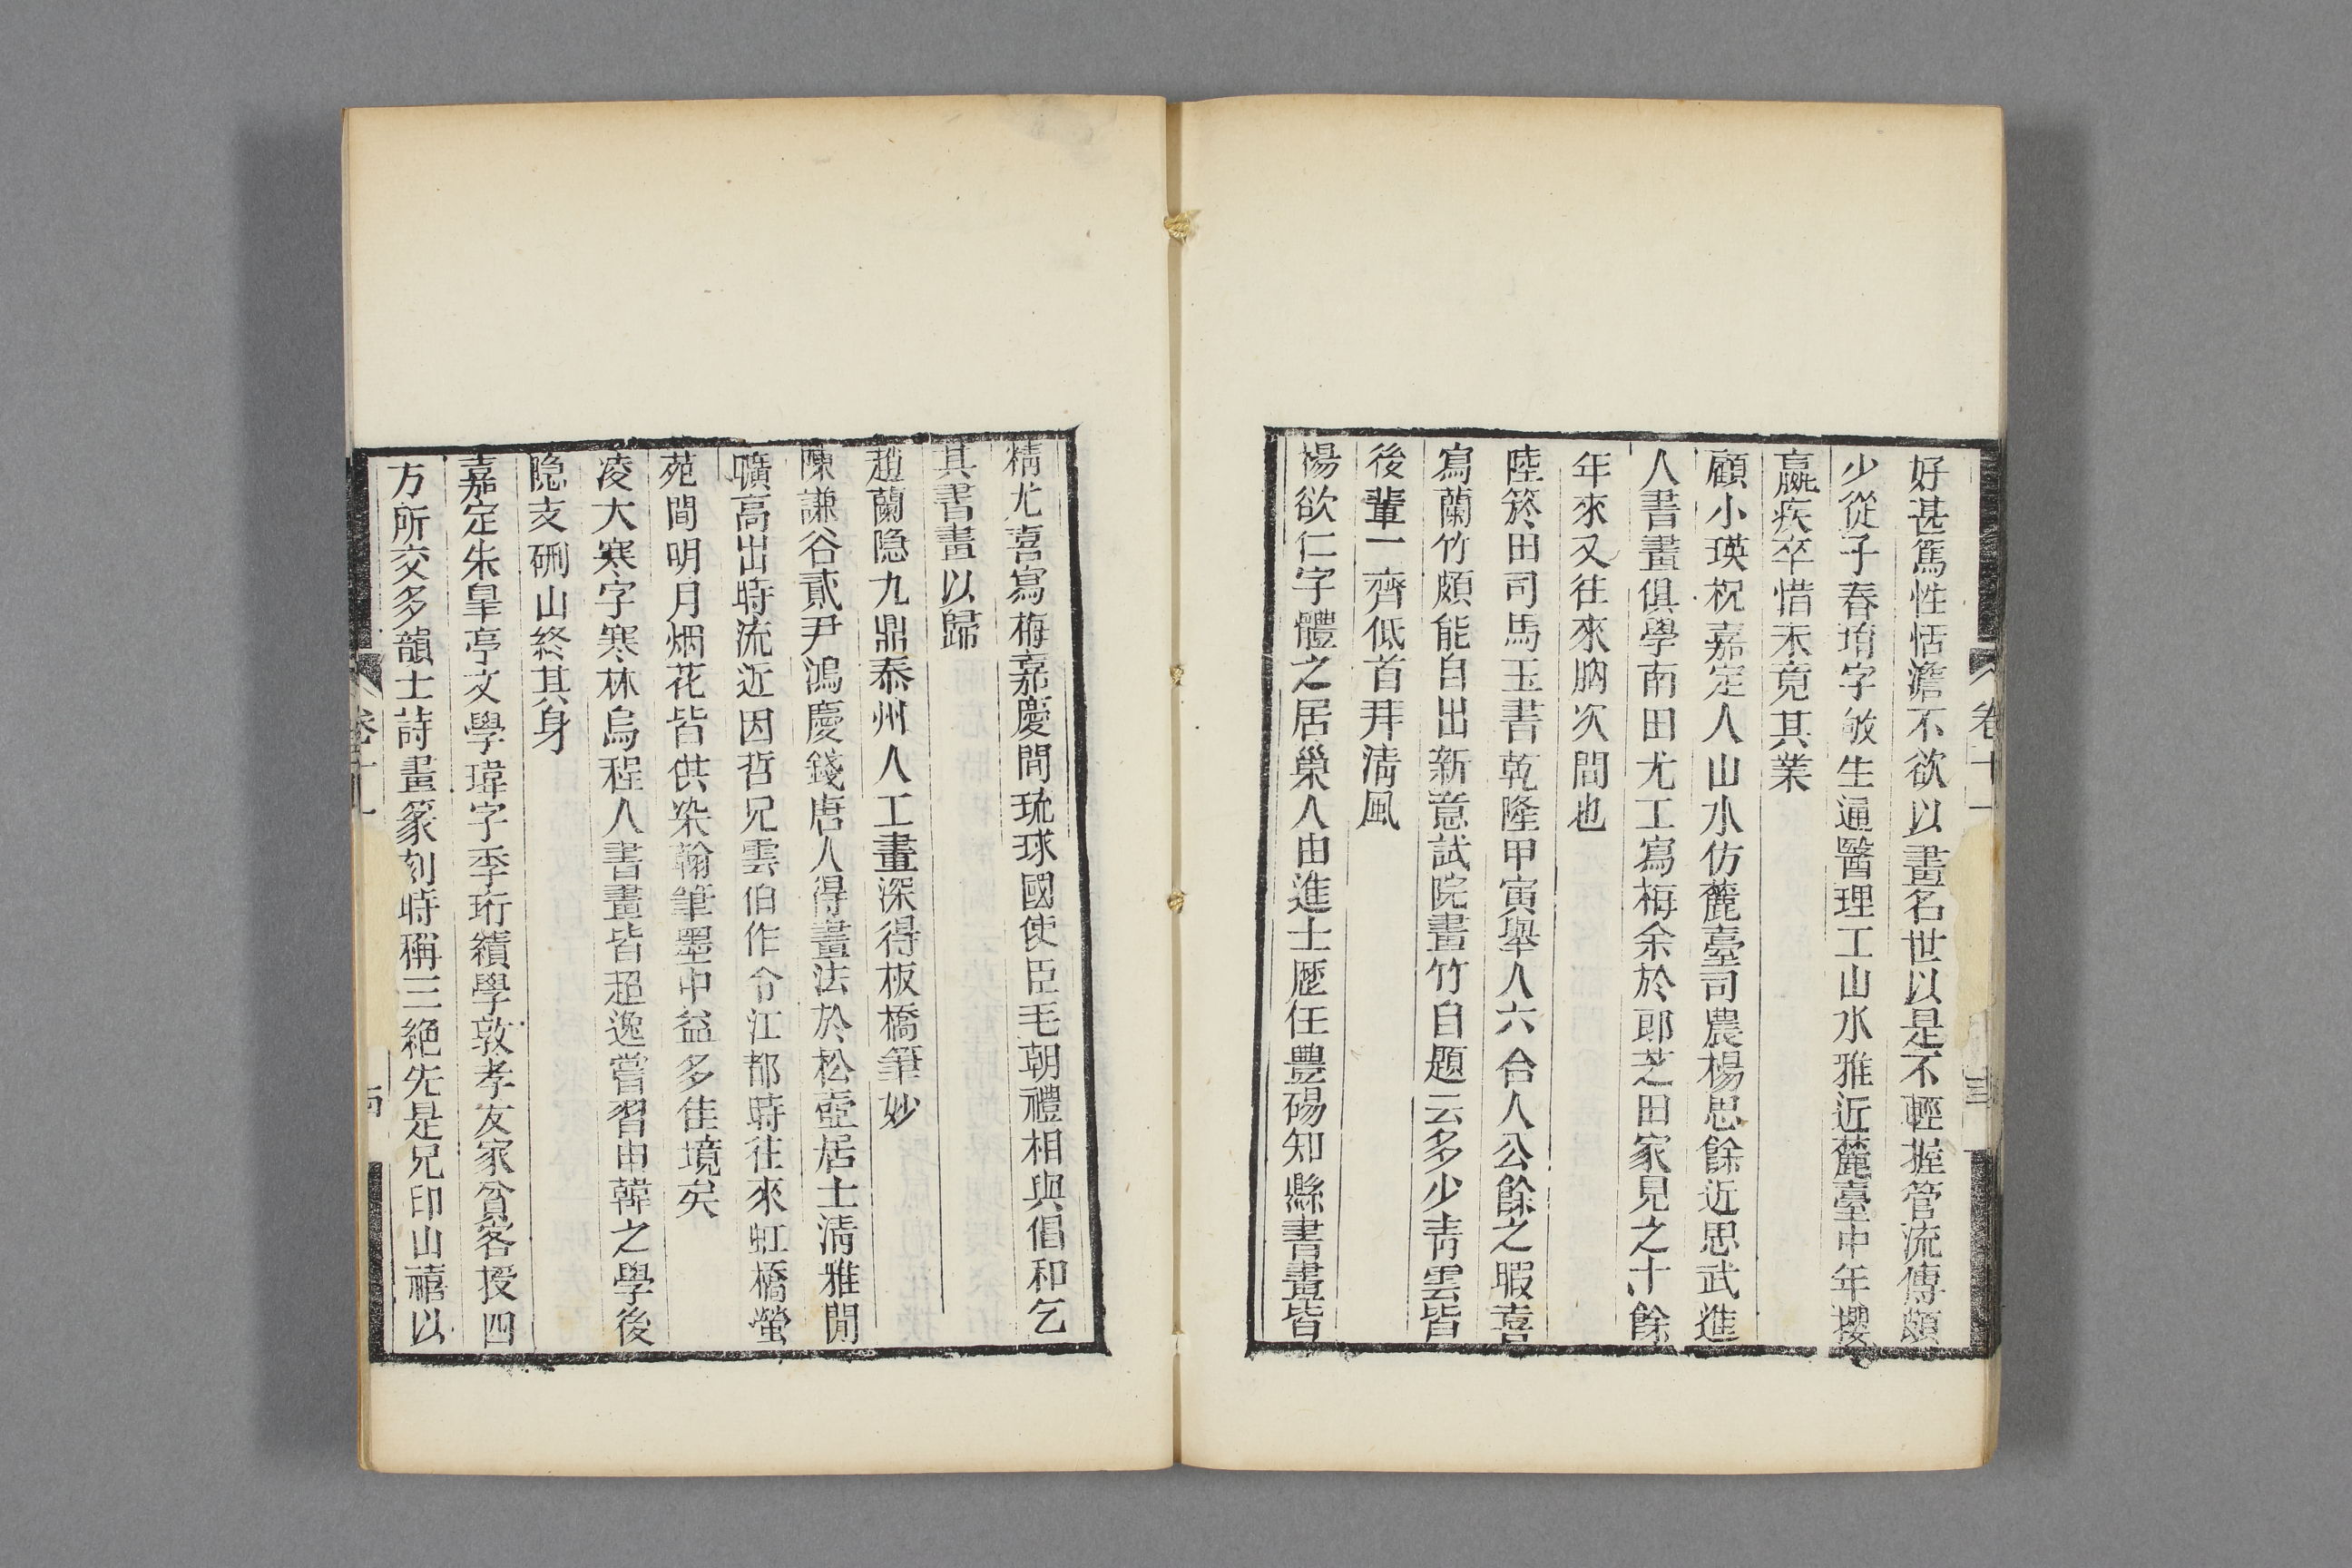 好甚篤性恬澹不欲以畫名世以是不輕握管流傳頗
少從子春堉字敏生通醫理工山水雅近麓臺中年攖
羸疾卒惜未竟其業
顧小瑛祝嘉定人山水仿麓臺司農楊思餘近思武進
人書畫俱學南田尤工寫梅余於郎芝田家見之十餘
年來又往來胸次間也
陸箊田司馬玉書乾隆甲寅舉人六合人公餘之暇喜
寫蘭竹頗能自出新意試院畫竹自題云多少青雲皆
後輩一齊低首拜清風
楊欲仁字體之居巢人由進士歷任豐碭知縣書畫皆
卷十一
精尤喜寫梅嘉慶間琉球國使臣毛朝禮相與倡和乞
其書畫以歸
趙蘭隐九鼎泰州人工畫深得板橋筆妙
陳謙谷貳尹鴻慶錢唐人得畫法於松壺居士清雅閒
曠高出時流近因哲兄雲伯作令江都時往來虹橋螢
苑間明月烟花皆供染翰筆墨中益多佳境矣
凌大寒字寒林烏程人書畫皆超逸嘗習申韓之學後
隐支硎山終其身
嘉定朱皐亭文學瑋字季珩績學敦孝友家貧客授四
方所交多韻士詩畫篆刻時稱三絶先是兄印山禧以
卷十一